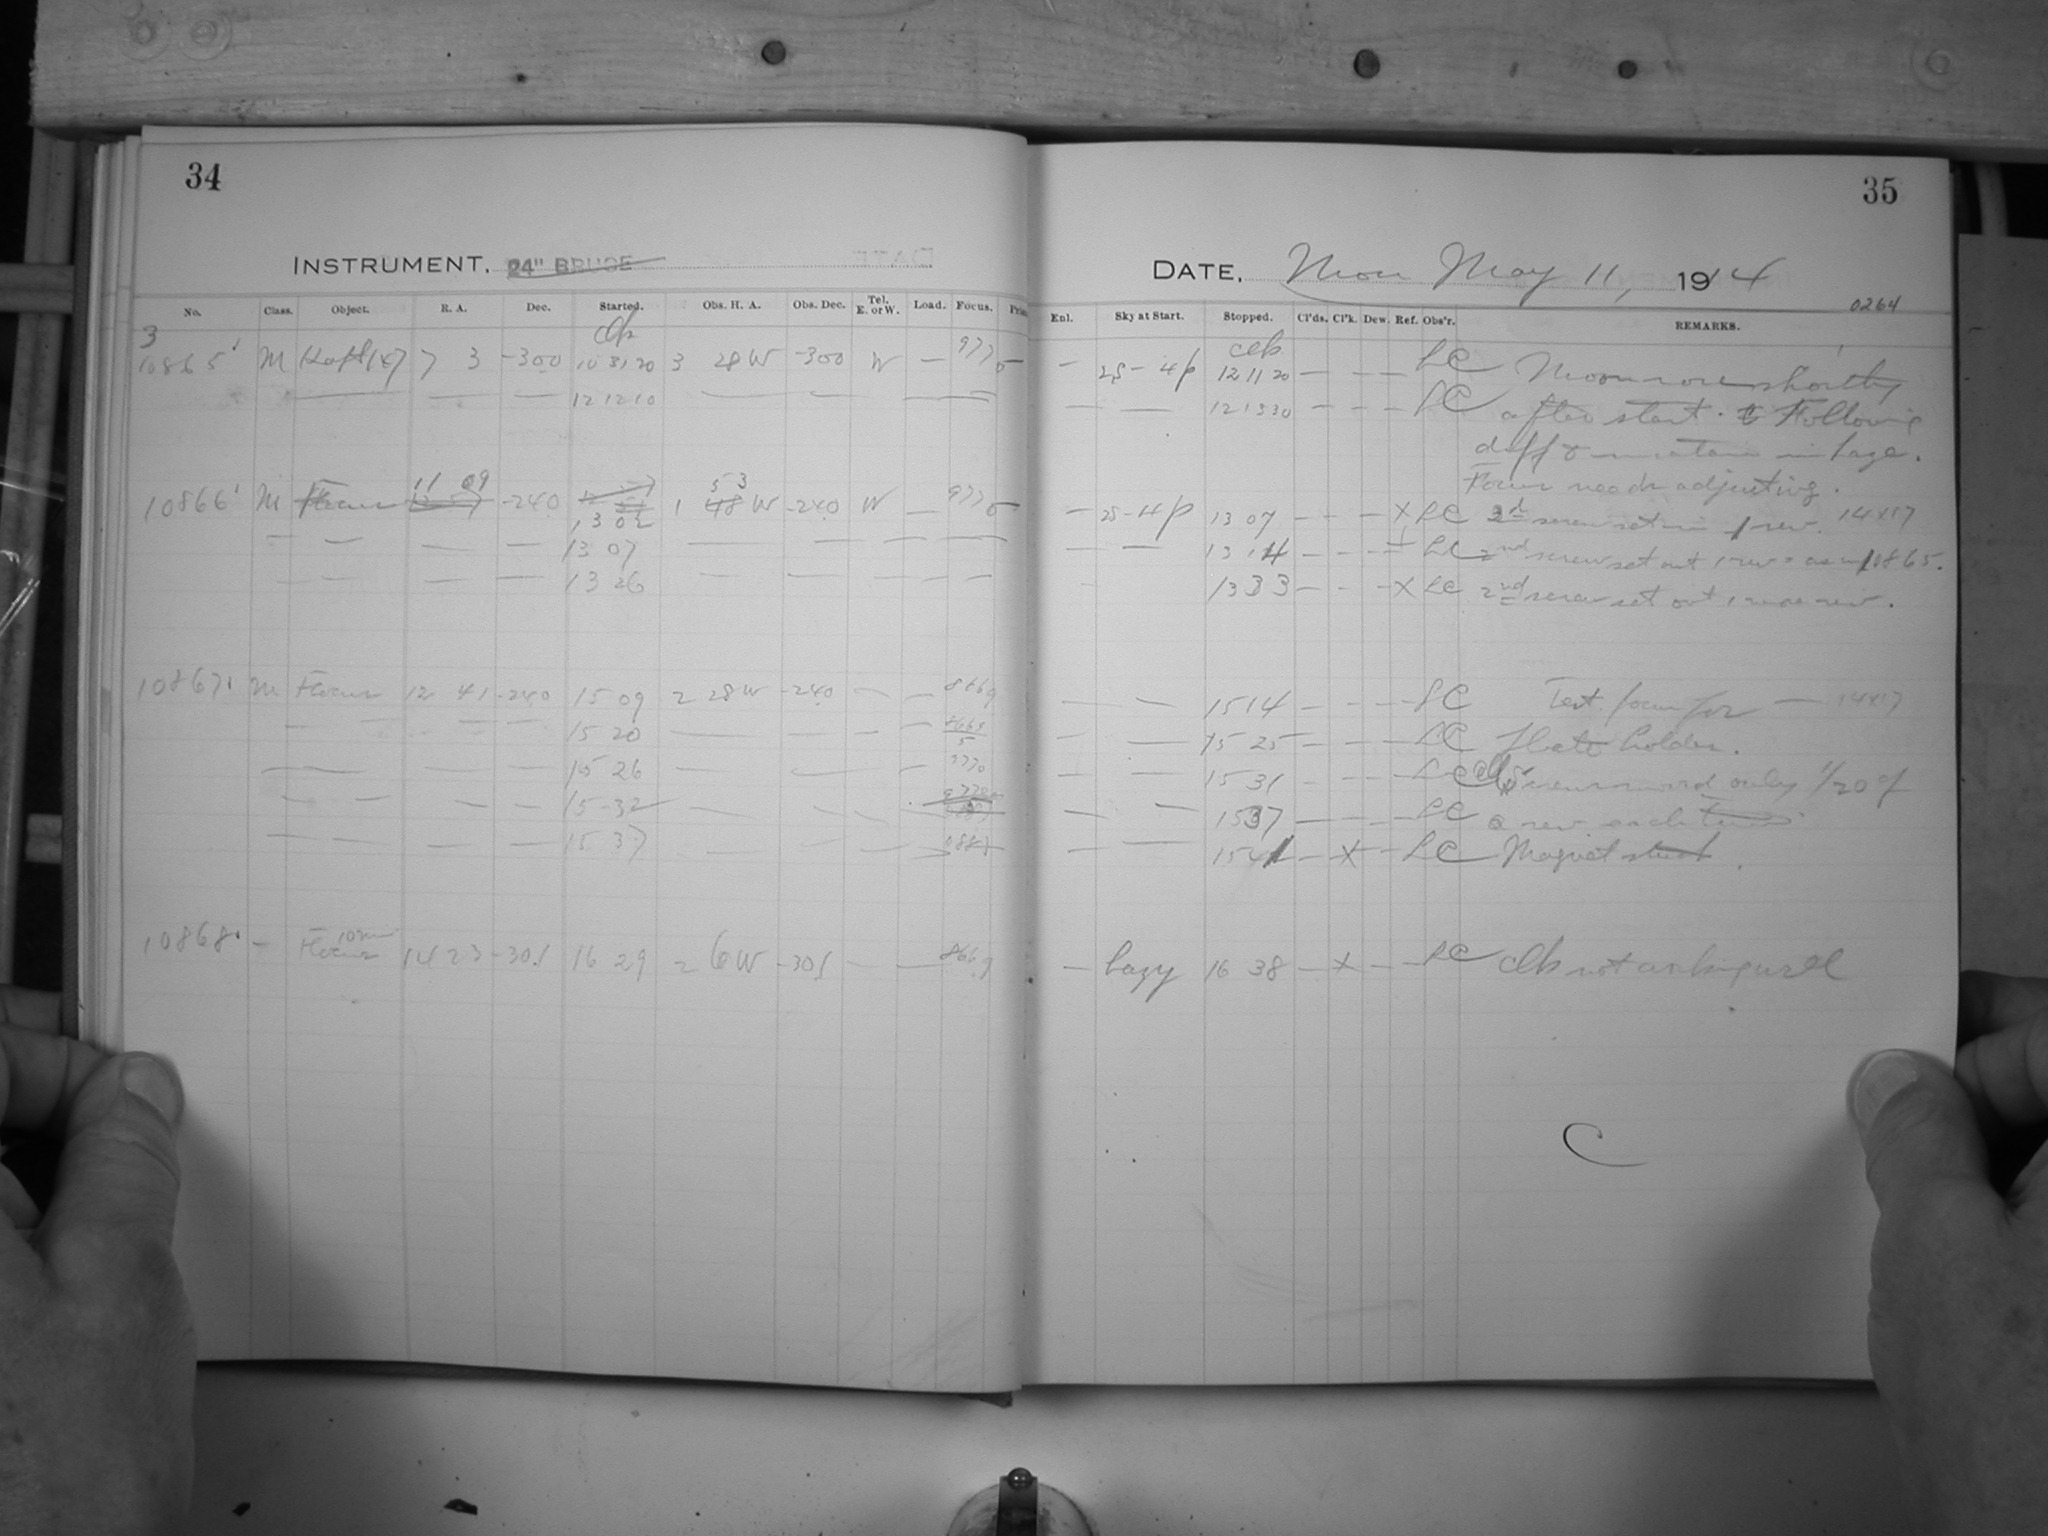 34
INSTRUMENT. 24" BRUCE
No. Class. Object. R. A. Dec. Started. Obs. H. A. Obs. Dec. Tel. E. or W. Load. Focus.
3
10865 M 7 3 -300 10 31 20 3 28 W -300 W — 9775
— — — 12 12 10 — — —
11 09 53
10866 M Focus -240 1 48 W -240 W — 9775
13 02
— — — — 13 07 — — — — —
— — — — 13 26 — — — — —
10867 M Focus 12 41 -240 15 09 2 28 W -240 — —
15 20
— — — — 15 26 — — — —
— — — — 15 32 — — —
— — — — 15 37 — — — —
10868 — Focus 14 23 -301 16 29 2 6 W -301 — —
35
DATE. Mon May 11, 1914
0264
Enl. Sky at Start. Stopped. Cl'ds. Cl'k. Dew. Ref. Obs'r. REMARKS.
clk
— 25-4p 12 11 20 — — — LC Moon rose shortly
— — 12 13 30 — — — LC after start. Following
diff
Focus needs adjusting.
— 25-4p 13 07 — — — X LC 2nd screw set in 1 rev. 14x17
— — 13 14 — — — LC 2nd screw set out 1 rev = as in 10865.
— 13 33 — — — X LC 2nd screw set out 1 more rev.
— — 15 14 — — — LC Test focus for — 14x17
— — 15 25 — — — LC Plate holder.
— — 15 31 — — — LC Screws moved only 1/20 of
— — 1537 — — — LC a rev. each time
— — 1541 — X — LC Magnet stuck.
— hazy 16 38 — X — — LC clk not working well
C